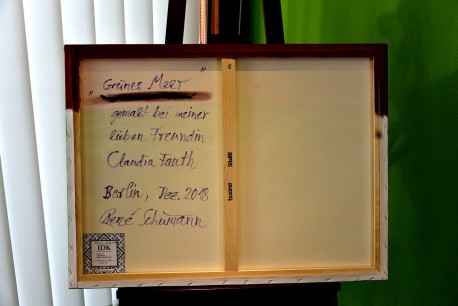 „Grünes Meer"
gemalt bei meiner
lieben Freundin
Claudia Fauth
Berlin, Dez. 2018
René Schumann
IDK